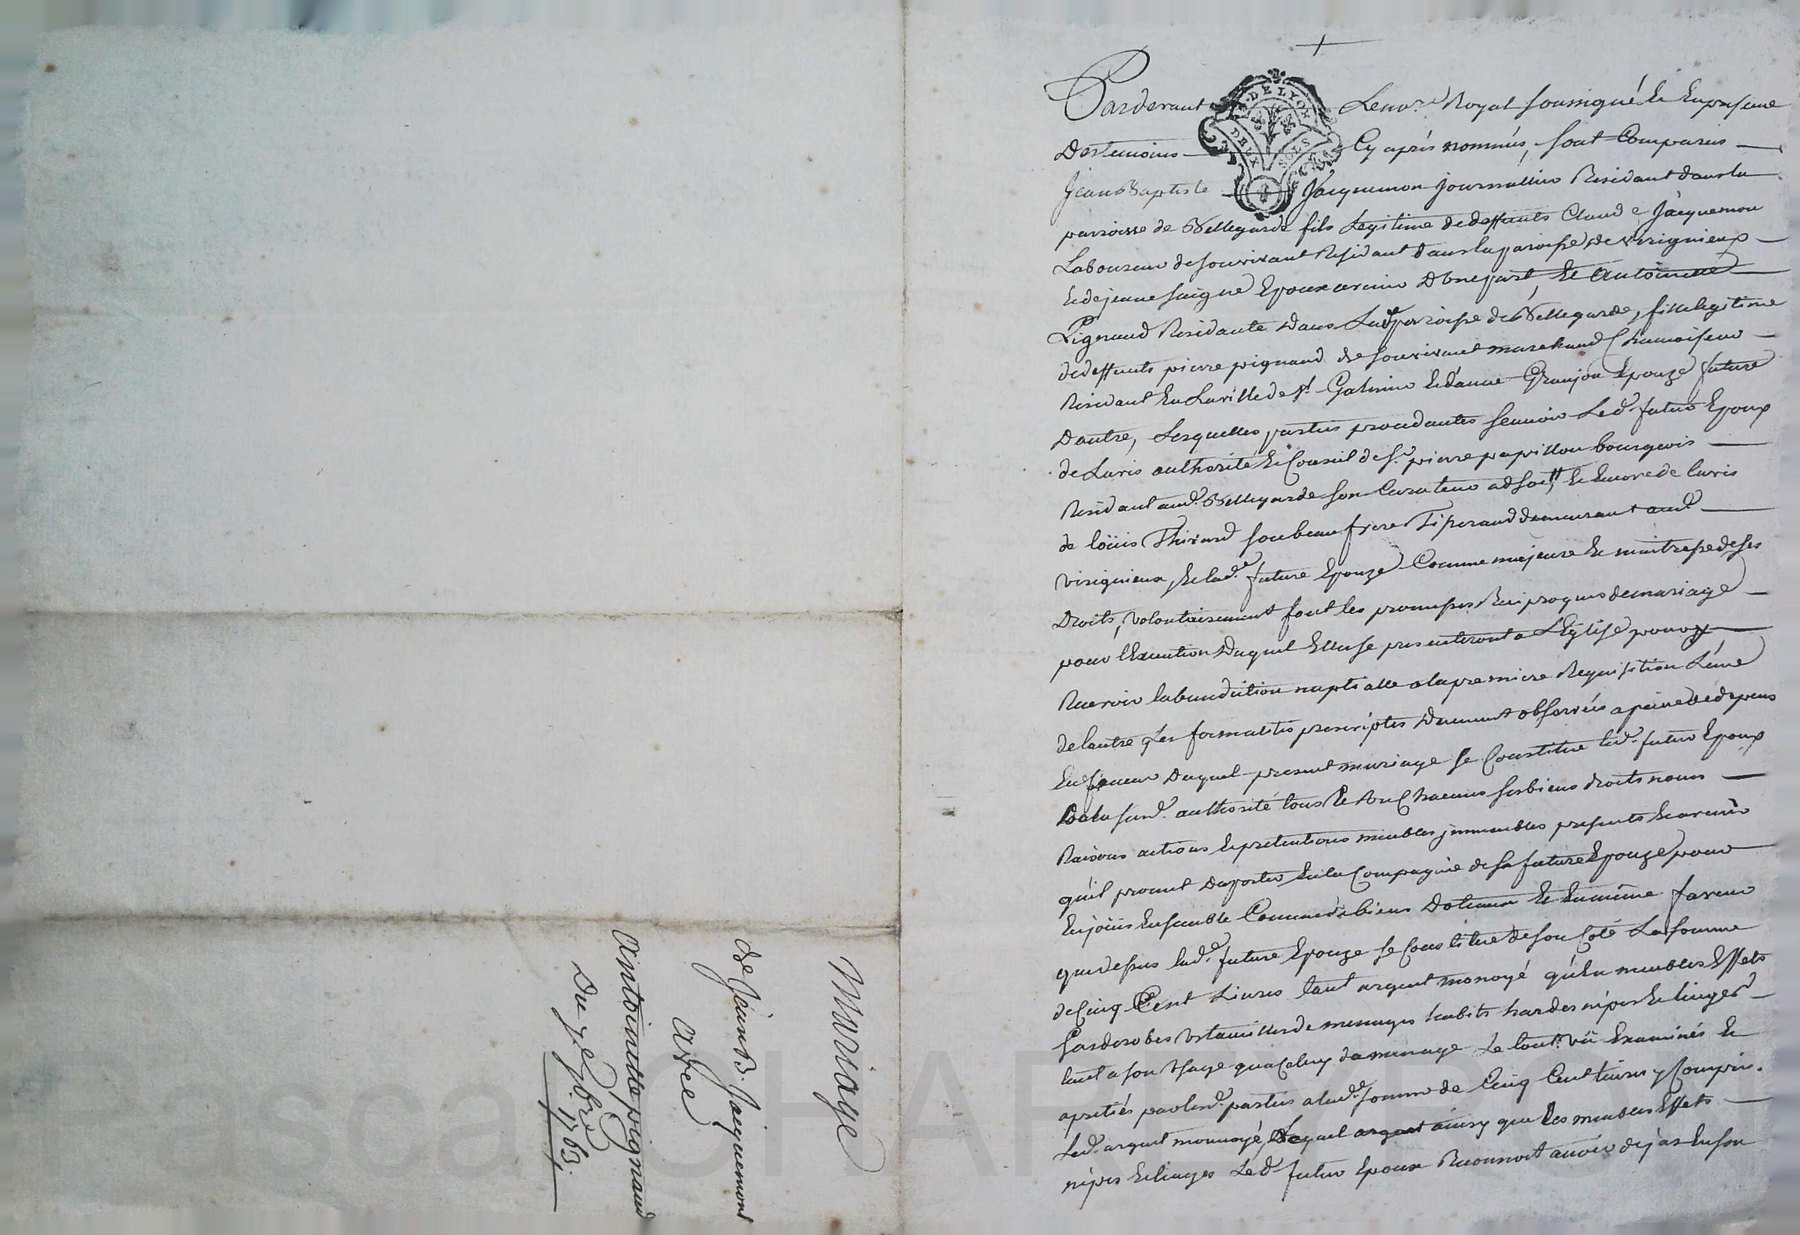 Mariage
de Jean B. Jacquemont
avec
antoinette pignaud
Du 7e 7bre 1763.
Pardevant Le nore Royal soussigné Et En presence
Des temoins Cy aprés nommés, sont Comparus
DE LYON
DEUX SOLS
Jean Baptiste Jacquemon journallier Residant dans la
parroisse de Bellegarde fils Legitime de deffunts Claude Jacquemon
Laboureur de son vivant Residant dans la paroisse de virignieux
Et de jeanne Epoux avenir D'une part, Et Antoinette
Pignaud Residante Dans Lad. parroisse de Bellegarde, fille legitime
de deffunts pierre pignaud de son vivant marchand Chamoiseur
Residant En La ville de St Galmier Et d'anne Granjon Epouze future
D'autre, Lesquelles parties procedantes sçavoir Led. futur Epoux
de Lavis authorité Et Conseil de Sr pierre papillon bourgeois
Residant aud. Bellegarde son Curateur Et Encore de lavis
de loüis Thivard son beau frere Tisserand demeurant aud.
virignieux, Et lad. future Epouze Comme majeure Et maitresse de ses
Droits, volontairement font les promesses Reciproques de mariage
pour l'Execution Duquel Elles se presenteront a L'Eglise pour y
Recevoir la benediction nuptialle a la premiere Requisition L'une
de l'autre Les formalités prescriptes Duement observées a peine de depens
En faveur Duquel present mariage se Constitue led. futur Epoux
De la susd. authorité tous Et Un Chacuns ses biens droits noms
Raisons actions Et pretentions meubles immeubles presents Et avenir
qu'il promet D'aporter En la Compagnie de sa future Epouze pour
En joüir Ensemble Comme de biens Dotaux Et En même faveur
que dessus lad. future Epouze se Constitue de son Coté La somme
de Cinq Cent Livres tant argent monoyé qu'En meubles Effets
Garderobes Ustancilles de menages habits hardes nipes Et linges
tant a son Usage qu'a Celuy du menage Le tout vü Examinés Et
apretiés par les d. parties a lad. somme de Cinq Cent livres y Compris
Led. argent monnoyé, Lequel argent ainsy que Les meubles Effets
nipes Et linges Led. futur Epoux Reconnoit avoir dejas En son